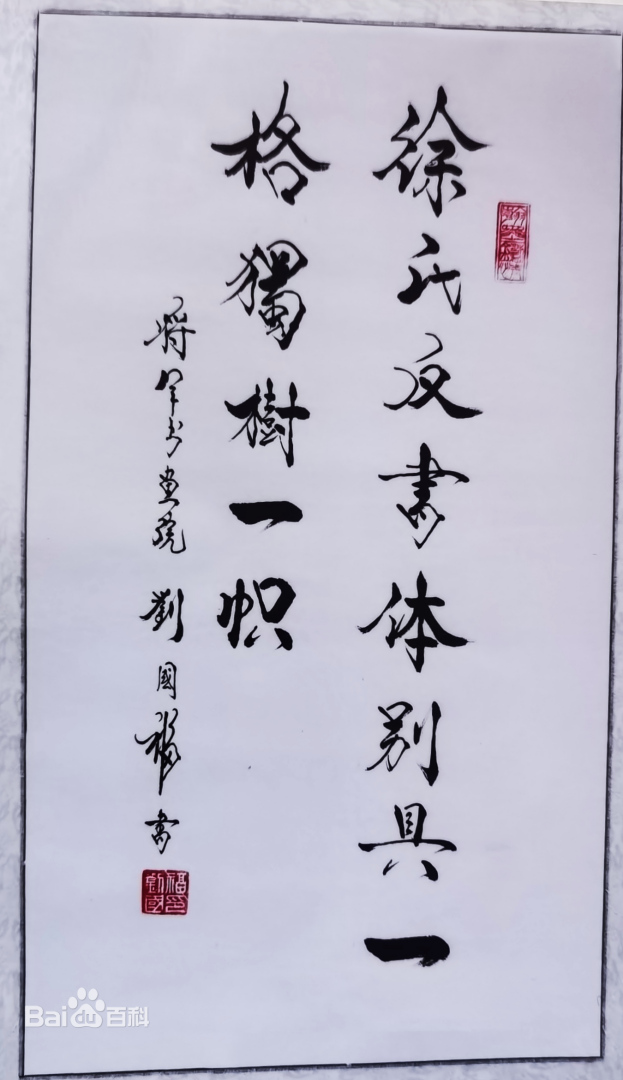 徐氏反書体别具一
格獨樹一帜
将军书画院 劉國福書
Baidu百科